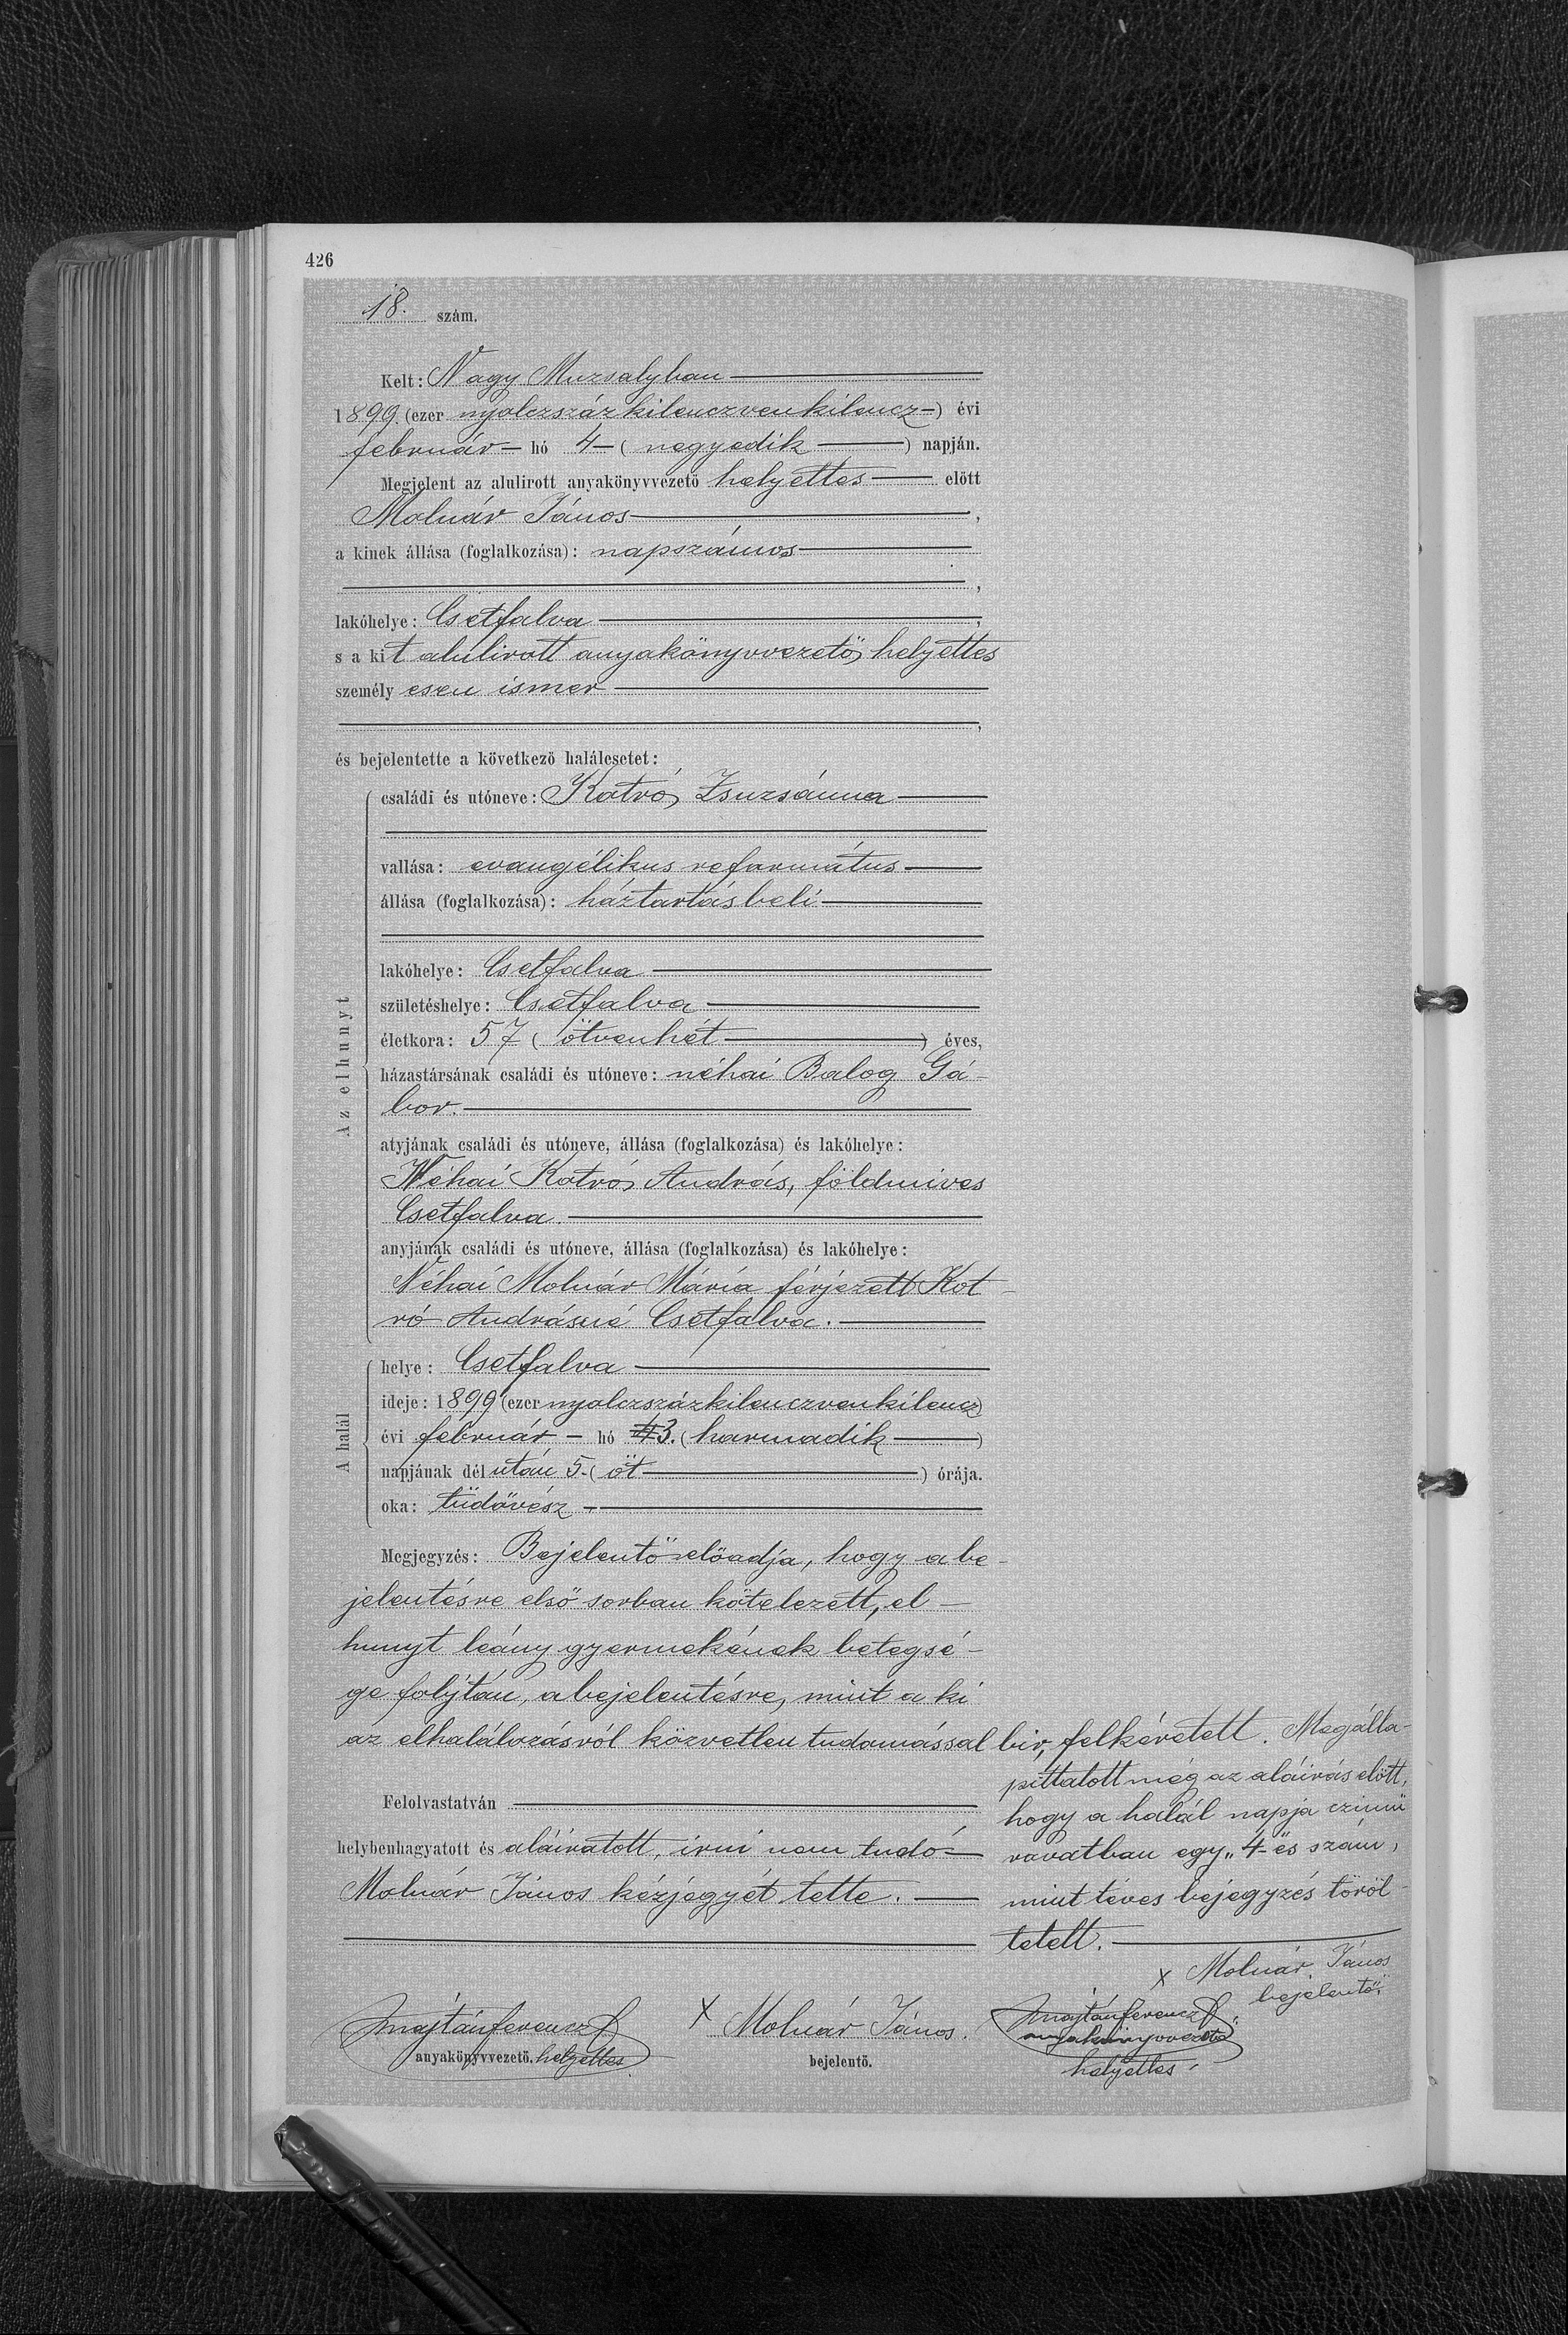 426
18. szám.
Kelt: Nagy Muzsalyban
1899. (ezer nyolczszáz kilenczven kilencz—) évi
február — hó 4 — (negyedik —) napján.
Megjelent az alulirott anyakönyvvezető helyettes — előtt
Molnár János —,
a kinek állása (foglalkozása): napszámos
lakóhelye: Csetfalva —,
s a kit alulirott anyakönyvvezető helyettes
személyesen ismer —
és bejelentette a következő halálesetet:
Az elhunyt
családi és utóneve: Kotró Zsuzsánna —
vallása: evangélikus református —
állása (foglalkozása): háztartásbeli —
lakóhelye: Csetfalva —
születéshelye: Csetfalva —
életkora: 57 (ötvenhét —) éves,
házastársának családi és utóneve: néhai Balog Gá-
bor. —
atyjának családi és utóneve, állása (foglalkozása) és lakóhelye:
Néhai Kotró András, földmives
Csetfalva. —
anyjának családi és utóneve, állása (foglalkozása) és lakóhelye:
Néhai Molnár Mária férjezett Kot-
ró Andrásné Csetfalva. —
A halál
helye: Csetfalva —
ideje: 1899 (ezer nyolczszázkilenczvenkilencz)
évi február — hó 4 3. (harmadik —)
napjának délután 5. (öt —) órája.
oka: tüdővész —
Megjegyzés: Bejelentő előadja, hogy a be-
jelentésre első sorban kötelezett, el-
hunyt leány gyermekének betegsé-
ge folytán, a bejelentésre, mint a ki
az elhalálozásról közvetlen tudomással bir, felkéretett. Megálla-
pittatott még az aláirás előtt,
hogy a halál napja czimü
rovatban egy „4-es szám,
mint téves bejegyzés töröl-
tetett. —
x Molnár János
bejelentő.
Felolvastatván —
helybenhagyatott és aláiratott, irni nem tudó —
Molnár János kézjegyét tette. —
Majtánferencz
anyakönyvvezető. helyettes
x Molnár János.
bejelentő.
Majtánferencz
anyakönyvvezető
helyettes